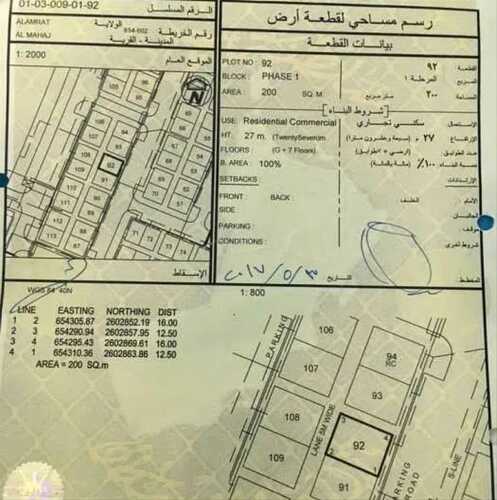 01-03-009-01-92
الرقم المسلسل
ALAMRAT
الولاية
رقم الخريطة
654-602
AL MAHAJ
المدينة - القرية
1: 2000
الموقع العام
رسم مساحي لقطعة أرض
بيانات القطعة
PLOT NO : 92
٩٢
القطعة
BLOCK : PHASE 1
المرحلة ١
المربع
AREA : 200 SQ. M
٢٠٠
متر مربع
المساحة
شروط البناء
USE: Residential Commercial
سكني تجاري
الاستعمال
HT: 27 m. (TwentySevenm
٢٧ م (سبعة وعشرون مترا)
الارتفاع
FLOORS (G + 7 Floors)
(أرضي + ٧طوابق)
عدد الطوابق
B. AREA : 100%
١٠٠٪ (مائة بالمائة)
SETBACKS
الإرتدادات
FRONT : BACK :
الخلف :
الأمام
SIDE
الجانبان
PARKING :
موقف
CONDITIONS :
شروط أخرى
المخطط
التاريخ
٢٠١٧/٥/٣
الاسقاط
WGS 84 40N
1: 800
LINE EASTING NORTHING DIST
1 2 654305.87 2602852.19 16.00
2 3 654290.94 2602857.95 12.50
3 4 654295.43 2602869.61 16.00
4 1 654310.36 2602863.86 12.50
AREA = 200 SQ.m
PARKING
106
107
108
109
LANE 8M WIDE
94
RC
93
92
91
3
4
2
1
PARKING
ROAD
S-LINE